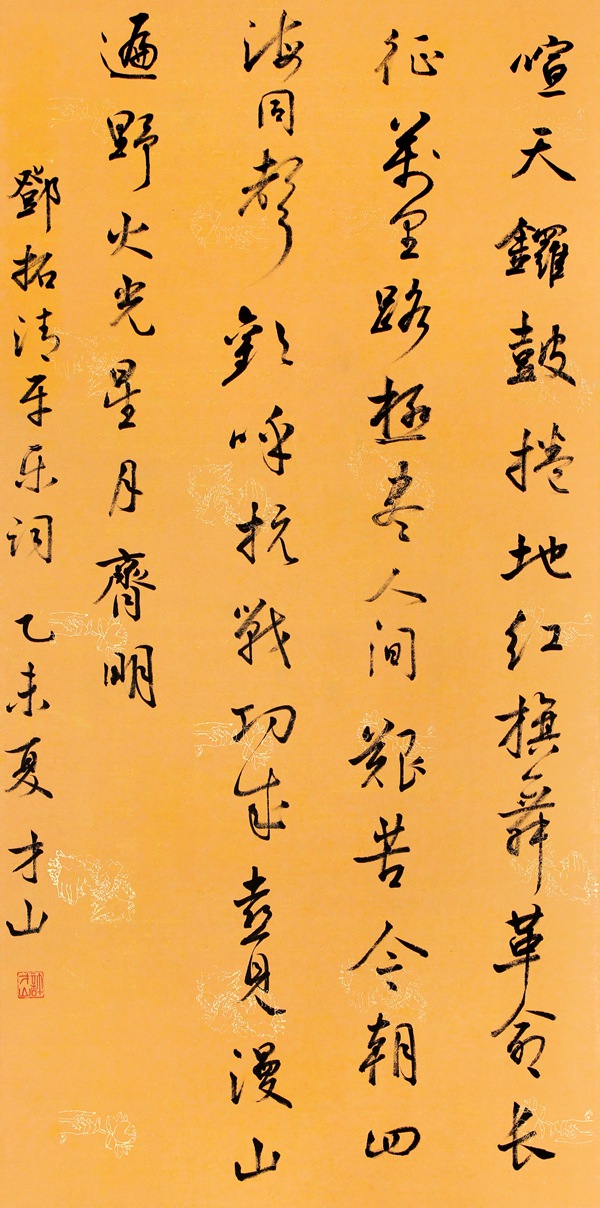 喧天鑼鼓捲地红旗舞革命长
征萬里路極尽人间艱苦今朝四
海同聲歡呼抗戰功成喜見漫山
遍野火光星月齊明
鄧拓清平乐词乙未夏才山
許才山